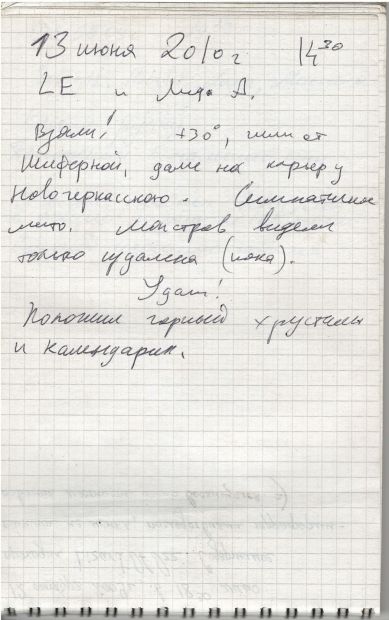 13 июня 2010 г 14 30
LE и Лида А.
Взяли! +30°, шли от
Шиферной, даже на карьеру
Новочеркасского. Симпатичное
место. Монстров видели
только издалека (пока).
Удачи!
Положил горный хрусталь
и календарик.